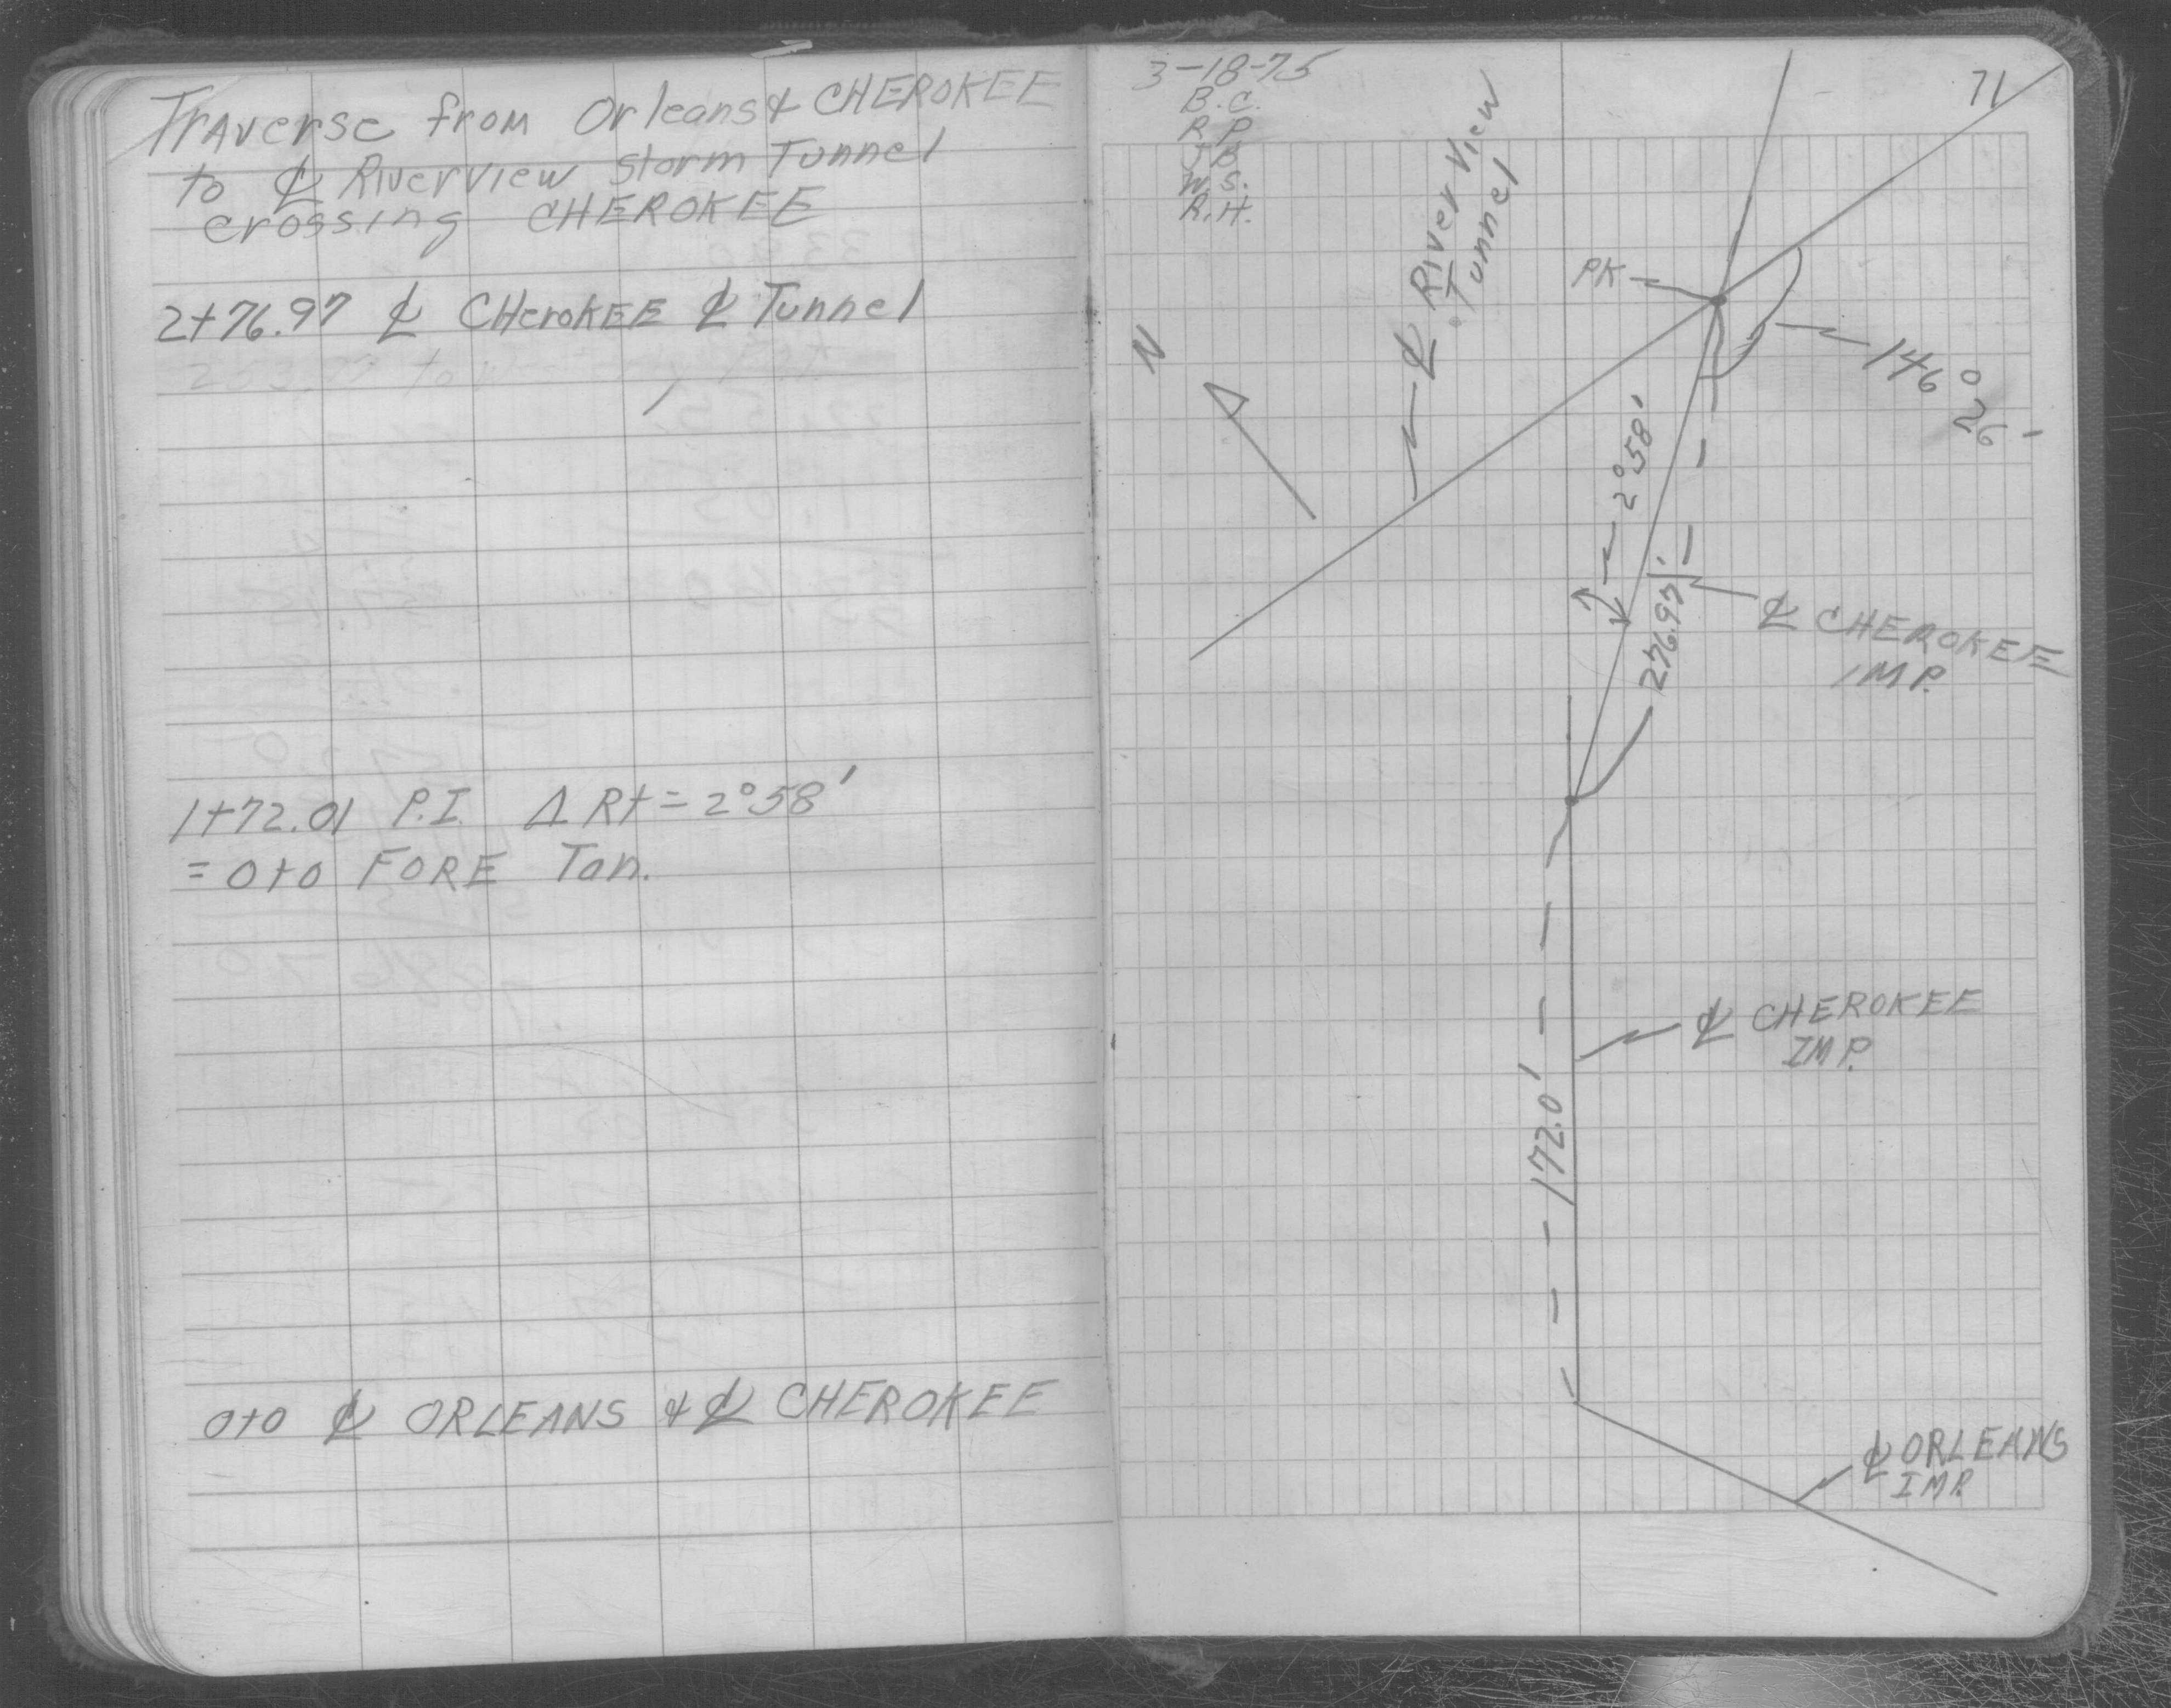 Traverse from Orleans & CHEROKEE
to ℄ Riverview Storm Tunnel
crossing CHEROKEE
2+76.97 ℄ CHEROKEE ℄ Tunnel
1+72.01 P.I. Δ Rt = 2°58'
= 0+0 FORE Tan.
0+0 ℄ ORLEANS & ℄ CHEROKEE
3-18-75
71
B.C.
R.P.
J.B.
W.S.
R.H.
℄ River View
Tunnel
PK
N
146°26'
2°58'
276.97'
℄ CHEROKEE
IMP.
℄ CHEROKEE
IMP.
172.0'
℄ ORLEANS
IMP.